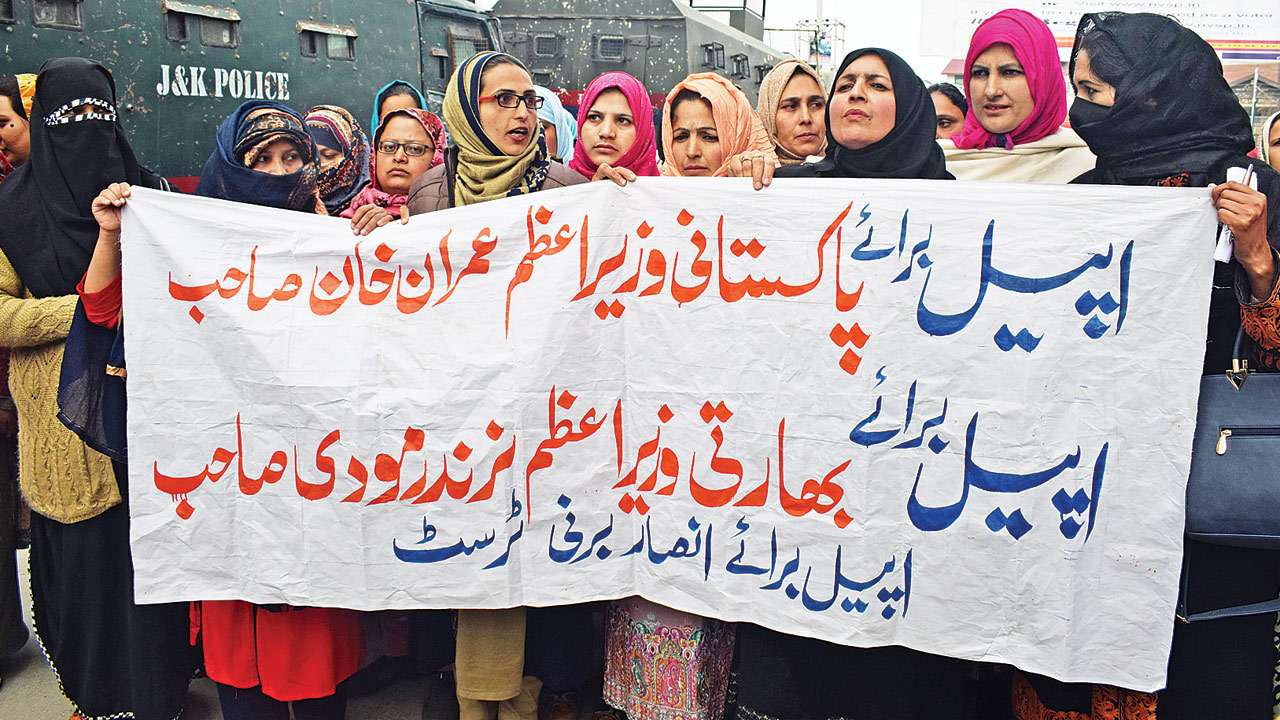 J&K POLICE
اپیل برائے پاکستانی وزیراعظم عمران خان صاحب
اپیل برائے بھارتی وزیراعظم نرندرمودی صاحب
اپیل برائے انصار برنی ٹرسٹ